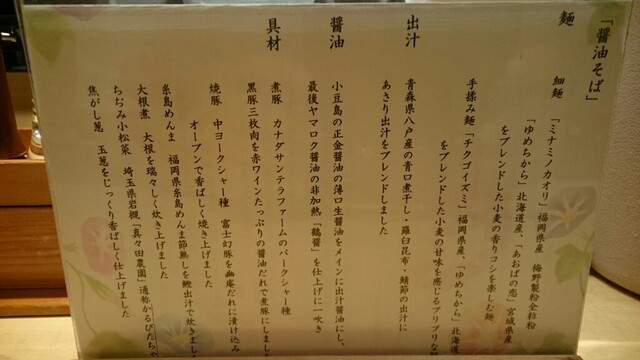 「醤油そば」
麺
細麺 「ミナミノカオリ」福岡県産 梅野製粉全粒粉
「ゆめちから」北海道産、「あおばの恋」宮城県産
をブレンドした小麦の香りコシを楽しむ麺
手揉み麺「チクゴイズミ」福岡県産、「ゆめちから」北海道
をブレンドした小麦の甘味を感じるプリプリな
出汁
青森県八戸産の青口煮干し・羅臼昆布・鯖節の出汁に
あさり出汁をブレンドしました
醤油
小豆島の正金醤油の薄口生醤油をメインに出汁醤油にし、
最後ヤマロク醤油の非加熱「鶴醤」を仕上げに一吹き
具材
煮豚 カナダサンテラファームのバークシャー種
黒豚三枚肉を赤ワインたっぷりの醤油だれで煮豚にしました
焼豚 中ヨークシャー種 富士幻豚を幽庵だれに漬け込み
オーブンで香ばしく焼き上げました
糸島めんま 福岡県糸島めんま節無しを鰹出汁で炊きました
大根煮 大根を瑞々しく炊き上げました
ちぢみ小松菜 埼玉県岩槻「真々田農園」通称かるびたちゃ
焦がし葱 玉葱をじっくり香ばしく仕上げました